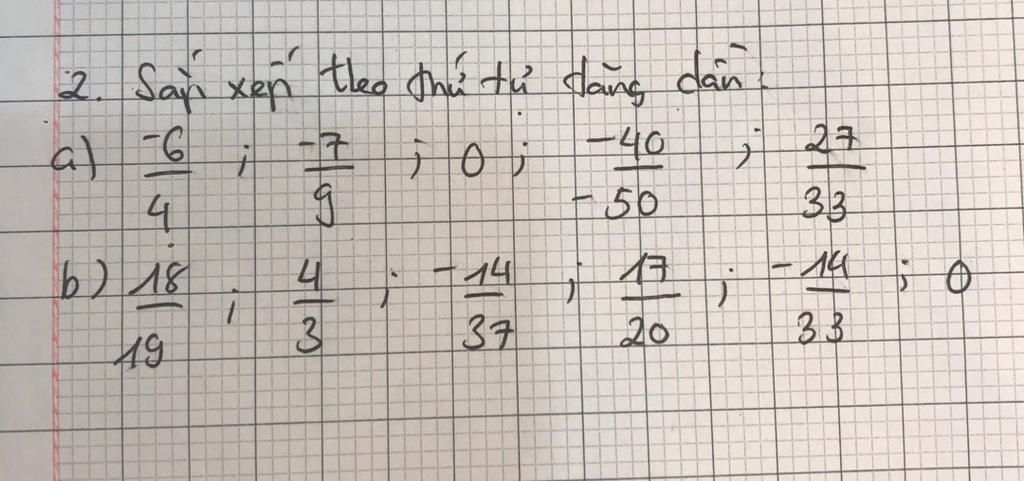 2. Sắp xếp theo thứ tự tăng dần:
a) -6/4 ; -7/9 ; 0 ; -40/-50 ; 27/33
b) 18/19 ; 4/3 ; -14/37 ; 17/20 ; -14/33 ; 0